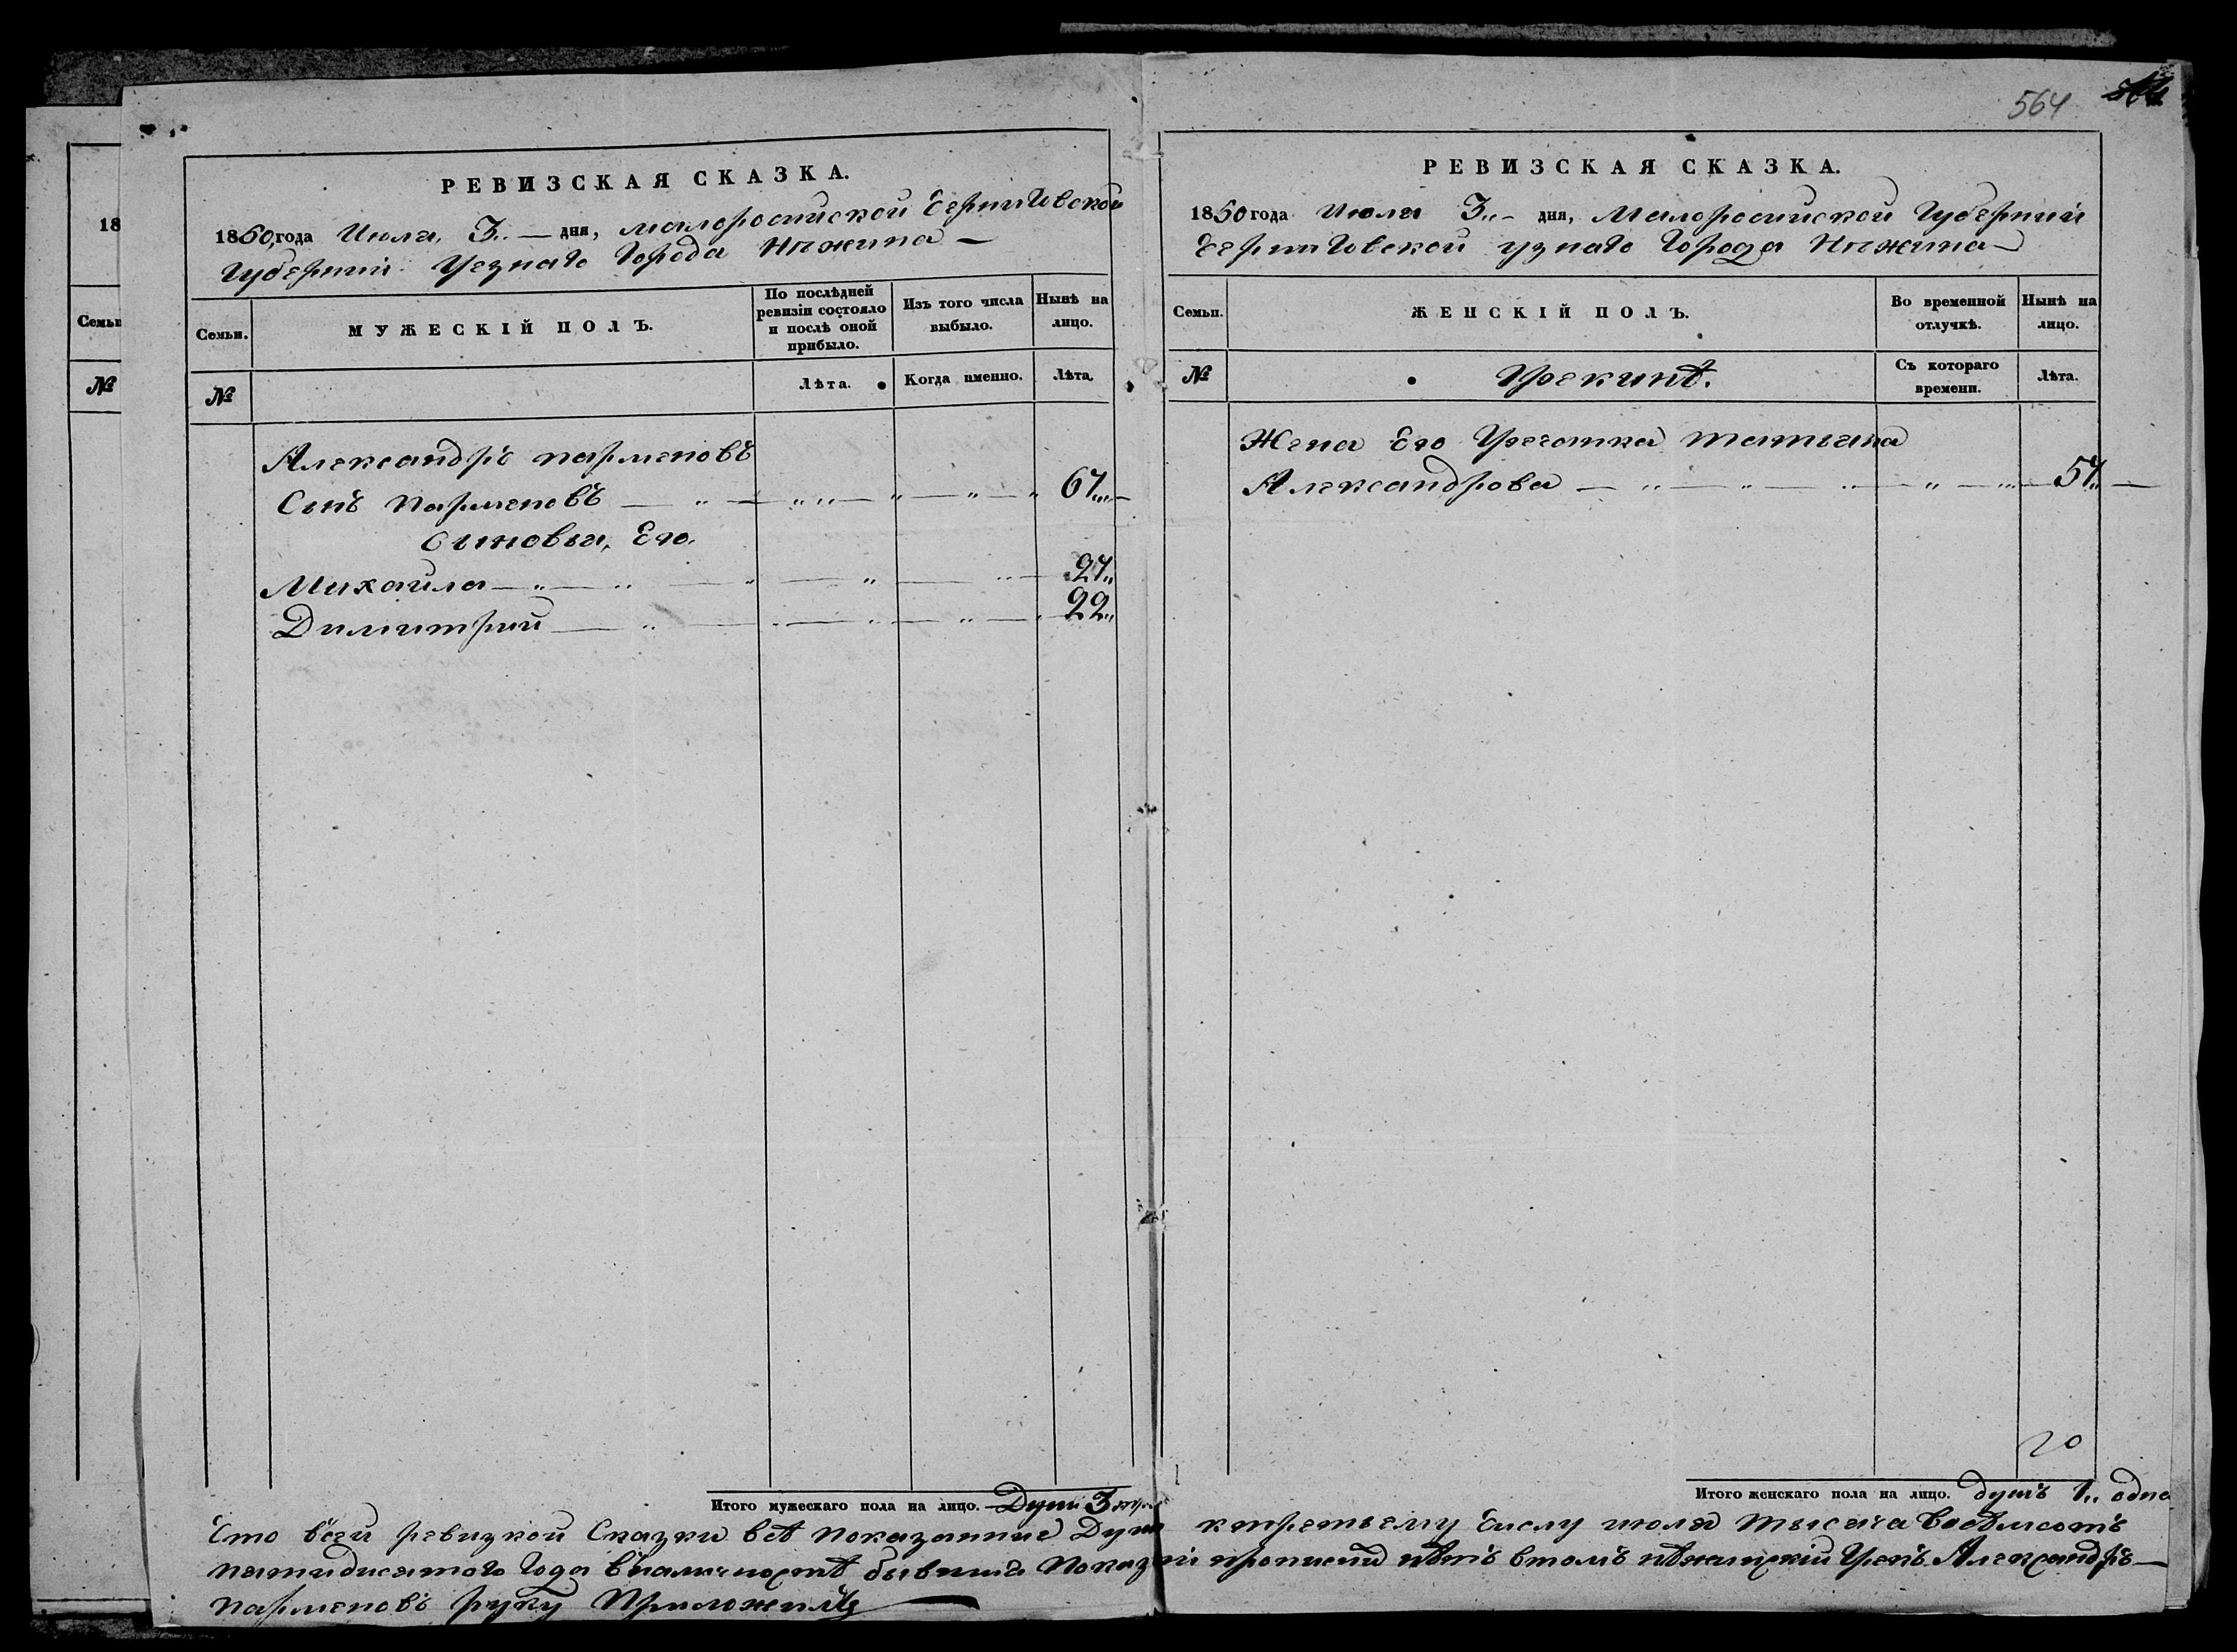 564
18
Семьи
№
РЕВИЗСКАЯ СКАЗКА.
1850 года Июля, 3.. — дня, малоросийской Черниговской
Губернии Уезнаго Города Нѣжина —
Семьи.
МУЖЕСКІЙ ПОЛЪ.
По послѣдней ревизіи состояло и послѣ оной прибыло.
Изъ того числа выбыло.
Нынѣ на лицо.
№
Лѣта.
Когда именно.
Лѣта.
Александръ парменовъ
Сынъ Парменовъ — 67
Сыновья, Его.
Михайла — 27
Димитрий — 22
Итого мужескаго пола на лицо. Души 3
РЕВИЗСКАЯ СКАЗКА.
1850 года Июля 3.. — дня, Малоросийской Губернии
Черниговской узнаго Города Нѣжина —
Семьи.
ЖЕНСКІЙ ПОЛЪ.
Во временной отлучкѣ.
Нынѣ на лицо.
№
Грекинѣ.
Съ котораго времени.
Лѣта.
Жена Его Гречанка татьяна
Александрова — 57 —
20
Итого женскаго пола на лицо. душъ 1.. одна
Что всеи ревизкой Сказки всѣ показанние Души ктретьему Числу июля тысяча восѣмсотъ
пятидисятого Года вналичностѣ бывшия Показаны прописей нѣтъ втомъ нѣжинскій Грекъ Александръ —
парменовъ руку Приложилъ